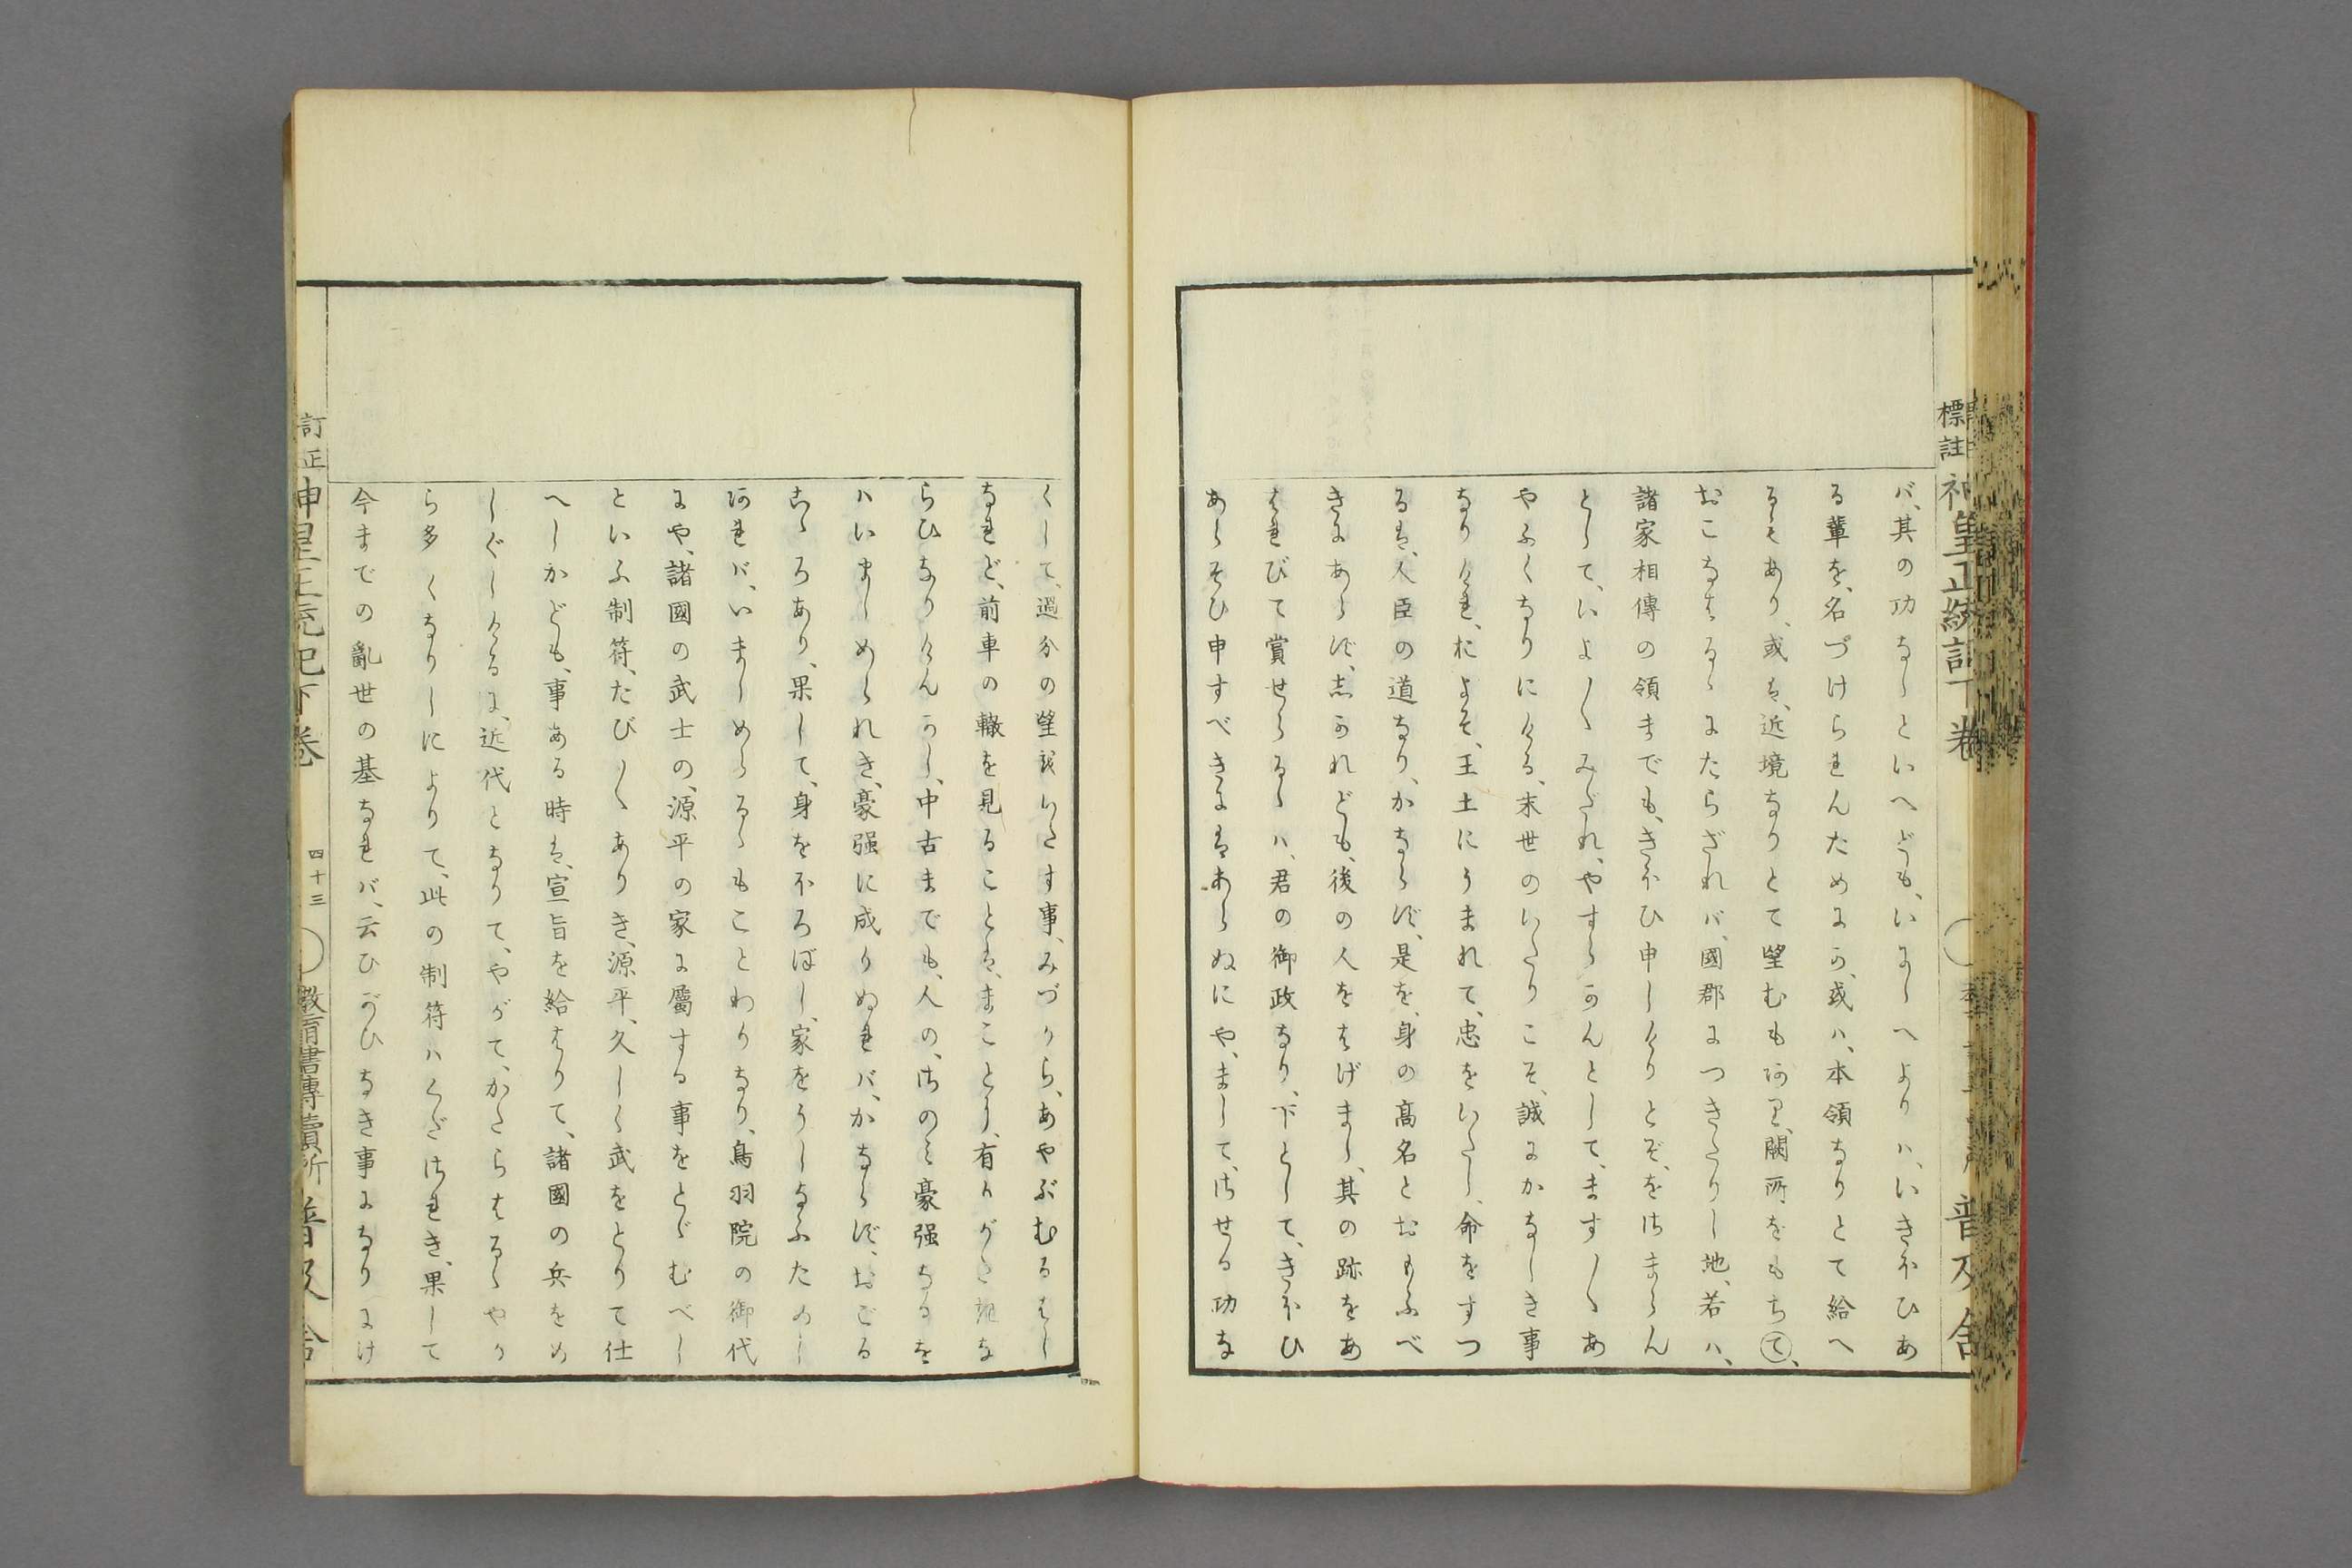 バ、其の功なしといへども、いにしへよりハ、いきほひあ
る輩を、名づけられんためにか、或ハ、本領なりとて給へ
るもあり、或は、近境なりとて望むもあり、闕所をもちて、
おこなはるゝにたらざれバ、國郡につきたりし地、若ハ、
諸家相傳の領までも、きほひ申しけりとぞ、をさまらん
として、いよ〳〵みだれ、やすらかんとして、ます〳〵あ
やふくなりにける、末世のいたりこそ、誠にかなしき事
なりけれ、凡よそ、王土にうまれて、忠をいたし、命をすつ
るは、人臣の道なり、かならず、是を、身の高名とおもふべ
きにあらず、志かれども、後の人をはげまし、其の跡をあ
はれびて賞せらるゝハ、君の御政なり、下として、きほひ
あらそひ申すべきにはあらぬにや、まして、させる功な
くして、過分の望をいたす事、みづから、あやぶむるはし
なれど、前車の轍を見ることは、まことに、有りがたき事な
らひなりけんかし、中古までも、人の、さのみ豪强なるを
ハいましめられき、豪强に成りぬれバ、かならず、おごる
こゝろあり、果して、身をほろぼし、家をうしなふためし
あれバ、いましめらるゝもことわりなり、鳥羽院の御代
にや、諸國の武士の、源平の家に屬する事をとゞむべし
といふ制符、たび〳〵ありき、源平、久しく武をとりて仕
へしかども、事ある時は、宣旨を給はりて、諸國の兵をめ
しぐしけるに、近代となりて、やがて、かたらはるゝやか
ら多くなりしによりて、此の制符ハくだされき、果して
今までの亂世の基なれバ、云ひがひなき事になりにけ
標註
神皇正統記下卷
普及舍
訂正
神皇正統記下卷
四十三
教育書專賣所
普及舍